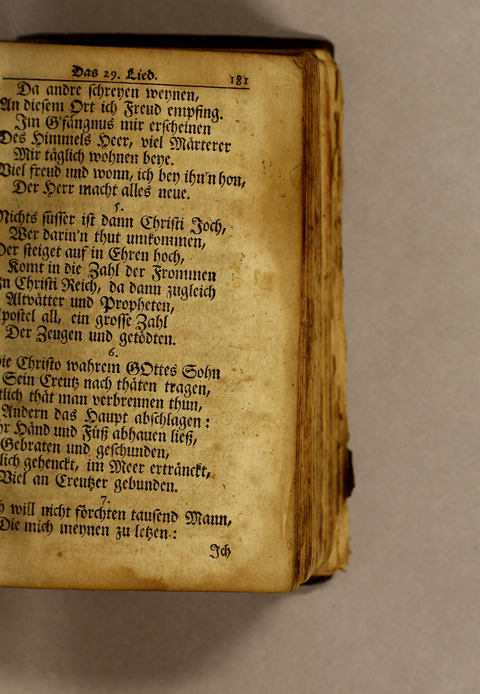 Das 29. Lied.
181
Da andre schreyen weynen,
An diesem Ort ich Freud empfing.
Im G'fängnus mir erscheinen
Des Himmels Heer, viel Märterer
Mir täglich wohnen beye.
Viel freud und wonn, ich bey ihn'n hon,
Der Herr macht alles neue.
5.
Nichts süsser ist dann Christi Joch,
Wer darin'n thut umkommen,
Der steiget auf in Ehren hoch,
Komt in die Zahl der Frommen
In Christi Reich, da dann zugleich
Altvätter und Propheten,
Apostel all, ein grosse Zahl
Der Zeugen und getödten.
6.
Die Christo wahrem GOttes Sohn
Sein Creutz nach thäten tragen,
thät man verbrennen thun,
Andern das Haupt abschlagen:
Händ und Füß abhauen ließ,
Gebraten und geschunden,
gehenckt, im Meer ertränckt,
Viel an Creutzer gebunden.
7.
will nicht förchten tausend Mann,
Die mich meynen zu letzen:
Ich